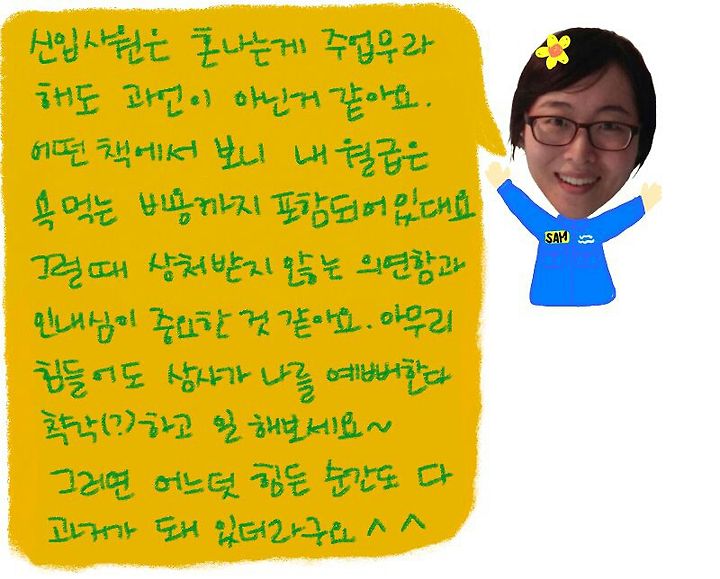 신입사원은 혼나는게 주업무라
해도 과언이 아닌거 같아요.
어떤 책에서 보니 내 월급은
욕먹는 비용까지 포함되어있대요
그럴때 상처받지 않는 의연함과
인내심이 중요한 것 같아요. 아무리
힘들어도 상사가 나를 예뻐한다
착각(?)하고 일 해보세요~
그러면 어느덧 힘든 순간도 다
과거가 돼 있더라구요 ^^
SAM